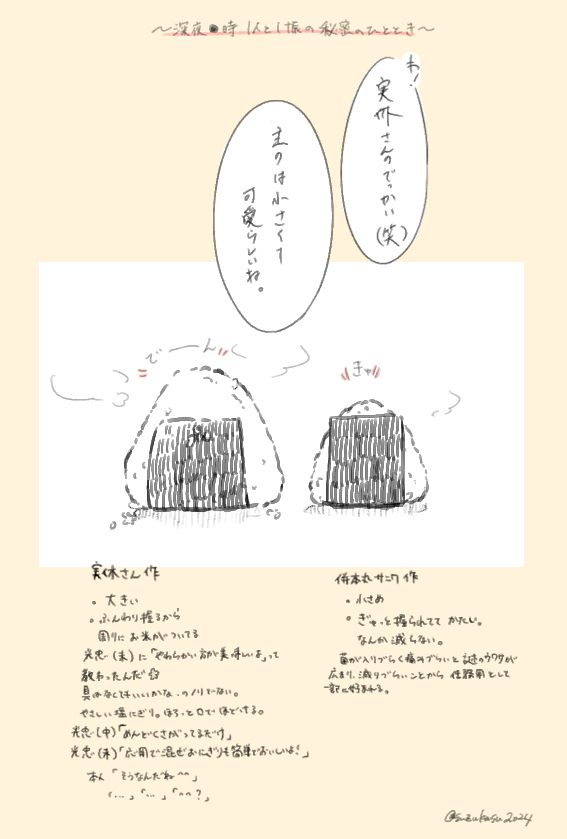 〜深夜●時 1人と1振の秘密のひととき〜
わ!
実休さんのでっかい(笑)
主のは小さくて
可愛らしいね。
でーん
きゅ
実休さん作
。大きい
。ふんわり握るから
周りにお米がついてる
光忠(末)に「やわらかい方が美味しいよ」って
教わったんだ
具はなくてもいいかな、のノリでない。
やさしい塩にぎり。ほろっと口でほどける。
光忠(中)「めんどくさがってるだけ」
光忠(末)「応用で混ぜおにぎりも簡単でおいしいよ!」
本人「そうなんだね^^」
「...」「...」「^^?」
併本丸サニワ作
。小さめ
。ぎゅっと握られててかたい。
なんか減らない。
菌が入りづらく痛みづらいと謎のウワサが
広まり、減りづらいことから 任務用として
一部に好まれる。
@suzukasu2024